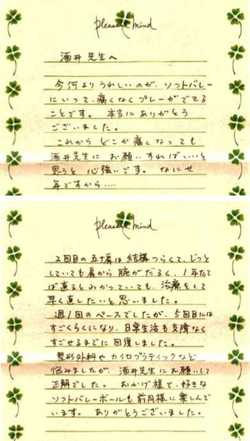 please mind
酒井先生へ
今何よりうれしいのが、ソフトバレー
にいって、痛くなくプレーができてる
ことです。本当にありがとう
ございました。
これからどこか痛くなっても
酒井先生にお願いすればいいと
思うと心強いです。なにせ
年ですから....
please mind
2回目の五十肩は結構つらくて、じっと
していても肩から腕がだるく、1年たて
ば直るとわかっていても、治療をして
早く直したいと思いました。
週1回のペースでしたが、5回目には
すごくらくになり、日常生活も支障なく
すごせるまでに回復しました。
整形外科やカイロプラティックなど
悩みましたが、酒井先生にお願いして
正解でした。おかげ様で、好きな
ソフトバレーボールも前同様に楽しんで
います。ありがとうございました。